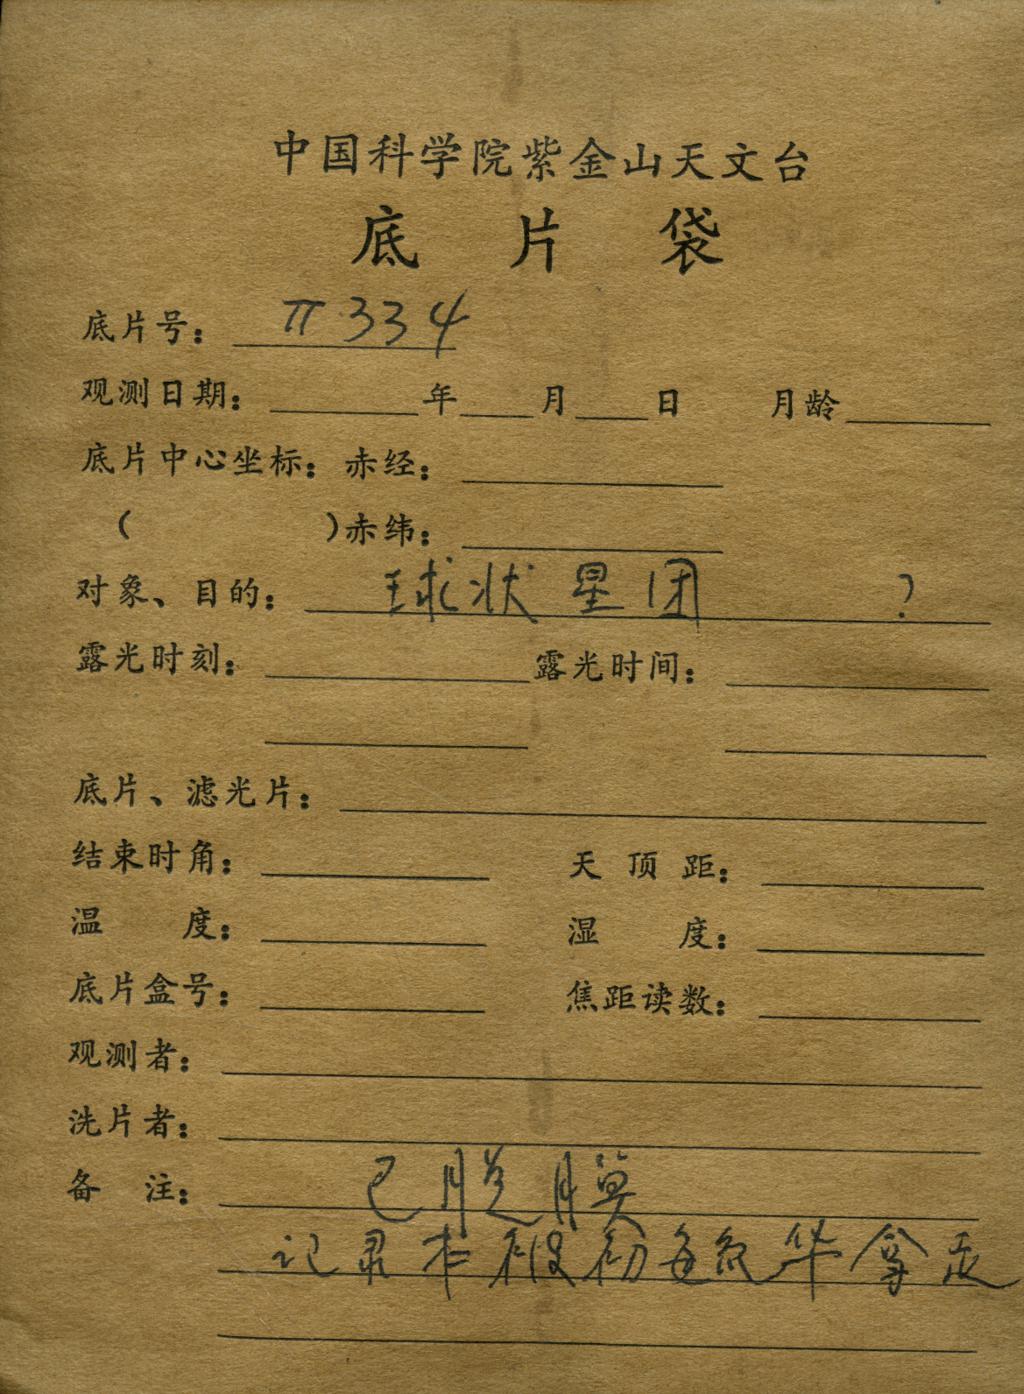 中国科学院紫金山天文台
底片袋
底片号：π334
观测日期：年月日 月龄
底片中心坐标：赤经：
（ ）赤纬：
对象、目的：球状星团？
露光时刻： 露光时间：
底片、滤光片：
结束时角： 天顶距：
温度： 湿度：
底片盒号： 焦距读数：
观测者：
洗片者：
备注：已脱膜
记录本被初毓华拿走